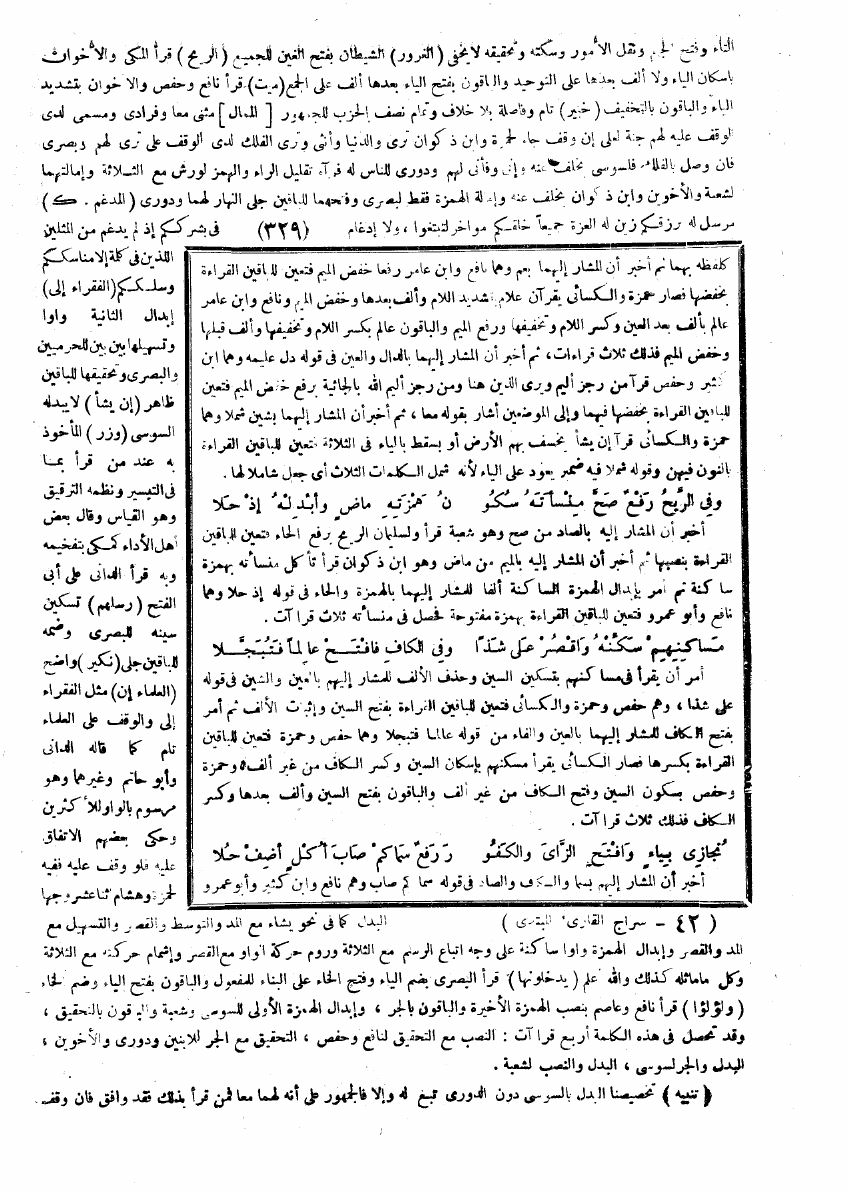 التاء وفتح الجيم ونقل الأمور وسكته وتحقيقه لا يخفى (الغرور) الشيطان بفتح الغين للجميع (الريح) قرأ المكى والأخوان
باسكان الياء ولا ألف بعدها على التوحيد والباقون بفتح الياء بعدها ألف على الجمع (ميت) قرأ نافع وحفص والاخوان بتشديد
الياء والباقون بالتخفيف (خبير) تام وفاصلة بلا خلاف وتمام نصف الحزب للجمهور [الممال] مثنى معا وفرادى ومسمى لدى
الوقف عليه لهم جنة لعلى إن وقف جاء لحمزة وابن ذكوان ترى والدنيا وأنثى وترى الفلك لدى الوقف على ترى لهم وبصرى
فان وصل بالفلك فلسوسى بخلف عنه وإنى وفأنى لهم ودورى للناس له قرآه تقليل الراء والهمز لورش مع الثلاثة وإمالتهما
لشعبة والأخوين وابن ذكوان بخلف عنه وإمالة الهمزة فقط لبصرى وفتحهما للباقين جلى النهار لهما ودورى (المدغم . ك)
مرسل له يرزقكم زين له العزة جميعاً خلقكم مواخر لتبتغوا ، ولا إدغام (٣٢٩) فى بشرككم إذ لم يدغم من المثلين
كلفظه بهما ثم أخبر أن المشار إليهما بعم وهما نافع وابن عامر رفعا خفض الميم فتعين للباقين القراءة
بخفضها فصار حمزة والكسائى يقرآن علام بتشديد اللام وألف بعدها وخفض الميم ونافع وابن عامر
عالم بألف بعد العين وكسر اللام وتخفيفها ورفع الميم والباقون عالم بكسر اللام وتخفيفها وألف قبلها
وخفض الميم فذلك ثلاث قراءات ، ثم أخبر أن المشار إليهما بالدال والعين فى قوله دل عليمه وهما ابن
كثير وحفص قرآ من رجز أليم ويرى الذين هنا ومن رجز أليم الله بالجاثية برفع خفض الميم فتعين
للباقين القراءة بخفضها فيهما وإلى الموضعين أشار بقوله معا ، ثم أخبر أن المشار إليهما بشين شملا وهما
حمزة والكسائى قرآ إن يشأ يخسف بهم الأرض أو يسقط بالياء فى الثلاثة فتعين للباقين القراءة
بالنون فيهن وقوله شملا فيه ضمير يعود على الياء لأنه شمل الكلمات الثلاث أى جعل شاملا لها .
وفي الرِّيحَ رَفْعٌ صَحَّ مِنْسَأَتَهُ سُكُو نُ هَمْزَتِهِ مَاضٍ وَأَبْدِلْهُ إذْ حَلَا
أخبر أن المشار إليه بالصاد من صح وهو شعبة قرأ ولسليمان الريح برفع الحاء فتعين للباقين
القراءة بنصبها ثم أخبر أن المشار إليه بالميم من ماض وهو ابن ذكوان قرأ تأكل منسأته بهمزة
ساكنة ثم أمر بإبدال الهمزة الساكنة ألفا للمشار إليهما بالهمزة والحاء فى قوله إذ حلا وهما
نافع وأبو عمرو فتعين للباقين القراءة بهمزة مفتوحة فحصل فى منسأته ثلاث قراآت .
مَسَاكِنِهِمْ سَكِّنْهُ وَاقْصُرْ عَلَى شَذًا وفي الكَافِ فَافْتَحْ عَالِماً فَتُبَجَّلَا
أمر أن يقرأ فى مساكنهم بتسكين السين وحذف الألف للمشار إليهم بالعين والشين فى قوله
على شذا ، وهم حفص وحمزة والكسائى فتعين للباقين القراءة بفتح السين وإثبات الألف ثم أمر
بفتح الكاف للمشار إليهما بالعين والفاء من قوله عالما فتبجلا وهما حفص وحمزة فتعين للباقين
القراءة بكسرها فصار الكسائى يقرأ مسكنهم بإسكان السين وكسر الكاف من غير ألف ٥ وحمزة
وحفص بسكون السين وفتح الكاف من غير ألف والباقون بفتح السين وألف بعدها وكسر
الكاف فذلك ثلاث قراآت .
نُجَازِى بِيَاءٍ وَافْتَحِ الزَّاىَ وَالكَفُو رَ رَفْعٌ سَمَا كَمْ صَابَ أُكْلٍ أضِفْ حُلَا
أخبر أن المشار إليهم بسما والكاف والصاد فى قوله سما كم صاب وهم نافع وابن كثير وأبو عمرو
اللذين فى كلمة إلا مناسككم
وسلككم (الفقراء إلى)
إبدال الثانية واوا
وتسهيلها بين بين للحرميين
والبصرى وتحقيقها للباقين
ظاهر (إن يشأ) لا يبدله
السوسى (وزر) المأخوذ
به عند من قرأ بما
فى التيسير ونظمه الترقيق
وهو القياس وقال بعض
أهل الأداء كمكى بتفخيمه
وبه قرأ الدانى على أبى
الفتح (رسلهم) تسكين
سينه للبصرى وضمه
للباقين جلى (نكير) واضح
(العلماء إن) مثل الفقراء
إلى والوقف على العلماء
تام كما قاله الدانى
وأبو حاتم وغيرهما وهو
مرسوم بالواو للأكثرين
وحكى بعضهم الاتفاق
عليه فلو وقف عليه ففيه
لحمزة وهشام اثنا عشر وجها
(٤٢ - سراج القارئ المبتدى) البدل كما فى نحو يشاء مع المد والتوسط والقصر والتسهيل مع
المد والقصر وإبدال الهمزة واوا ساكنة على وجه اتباع الرسم مع الثلاثة وروم حركة الواو مع القصر وإشمام حركته مع الثلاثة
وكل ما ماثله كذلك والله أعلم (يدخلونها) قرأ البصرى بضم الياء وفتح الخاء على البناء للمفعول والباقون بفتح الياء وضم الخاء
(ولؤلؤا) قرأ نافع وعاصم بنصب الهمزة الأخيرة والباقون بالجر ، وإبدال الهمزة الأولى للسوسى وشعبة والباقون بالتحقيق ،
وقد تحصل فى هذه الكلمة أربع قراآت : النصب مع التحقيق لنافع وحفص ، التحقيق مع الجر للابنين ودورى والأخوين ،
البدل والجر لسوسى ، البدل والنصب لشعبة .
(تنبيه) تخصيصنا البدل بالسوسى دون الدورى تبع له وإلا فالجمهور على أنه لهما معا فمن قرأ بذلك فقد وافق فان وقف